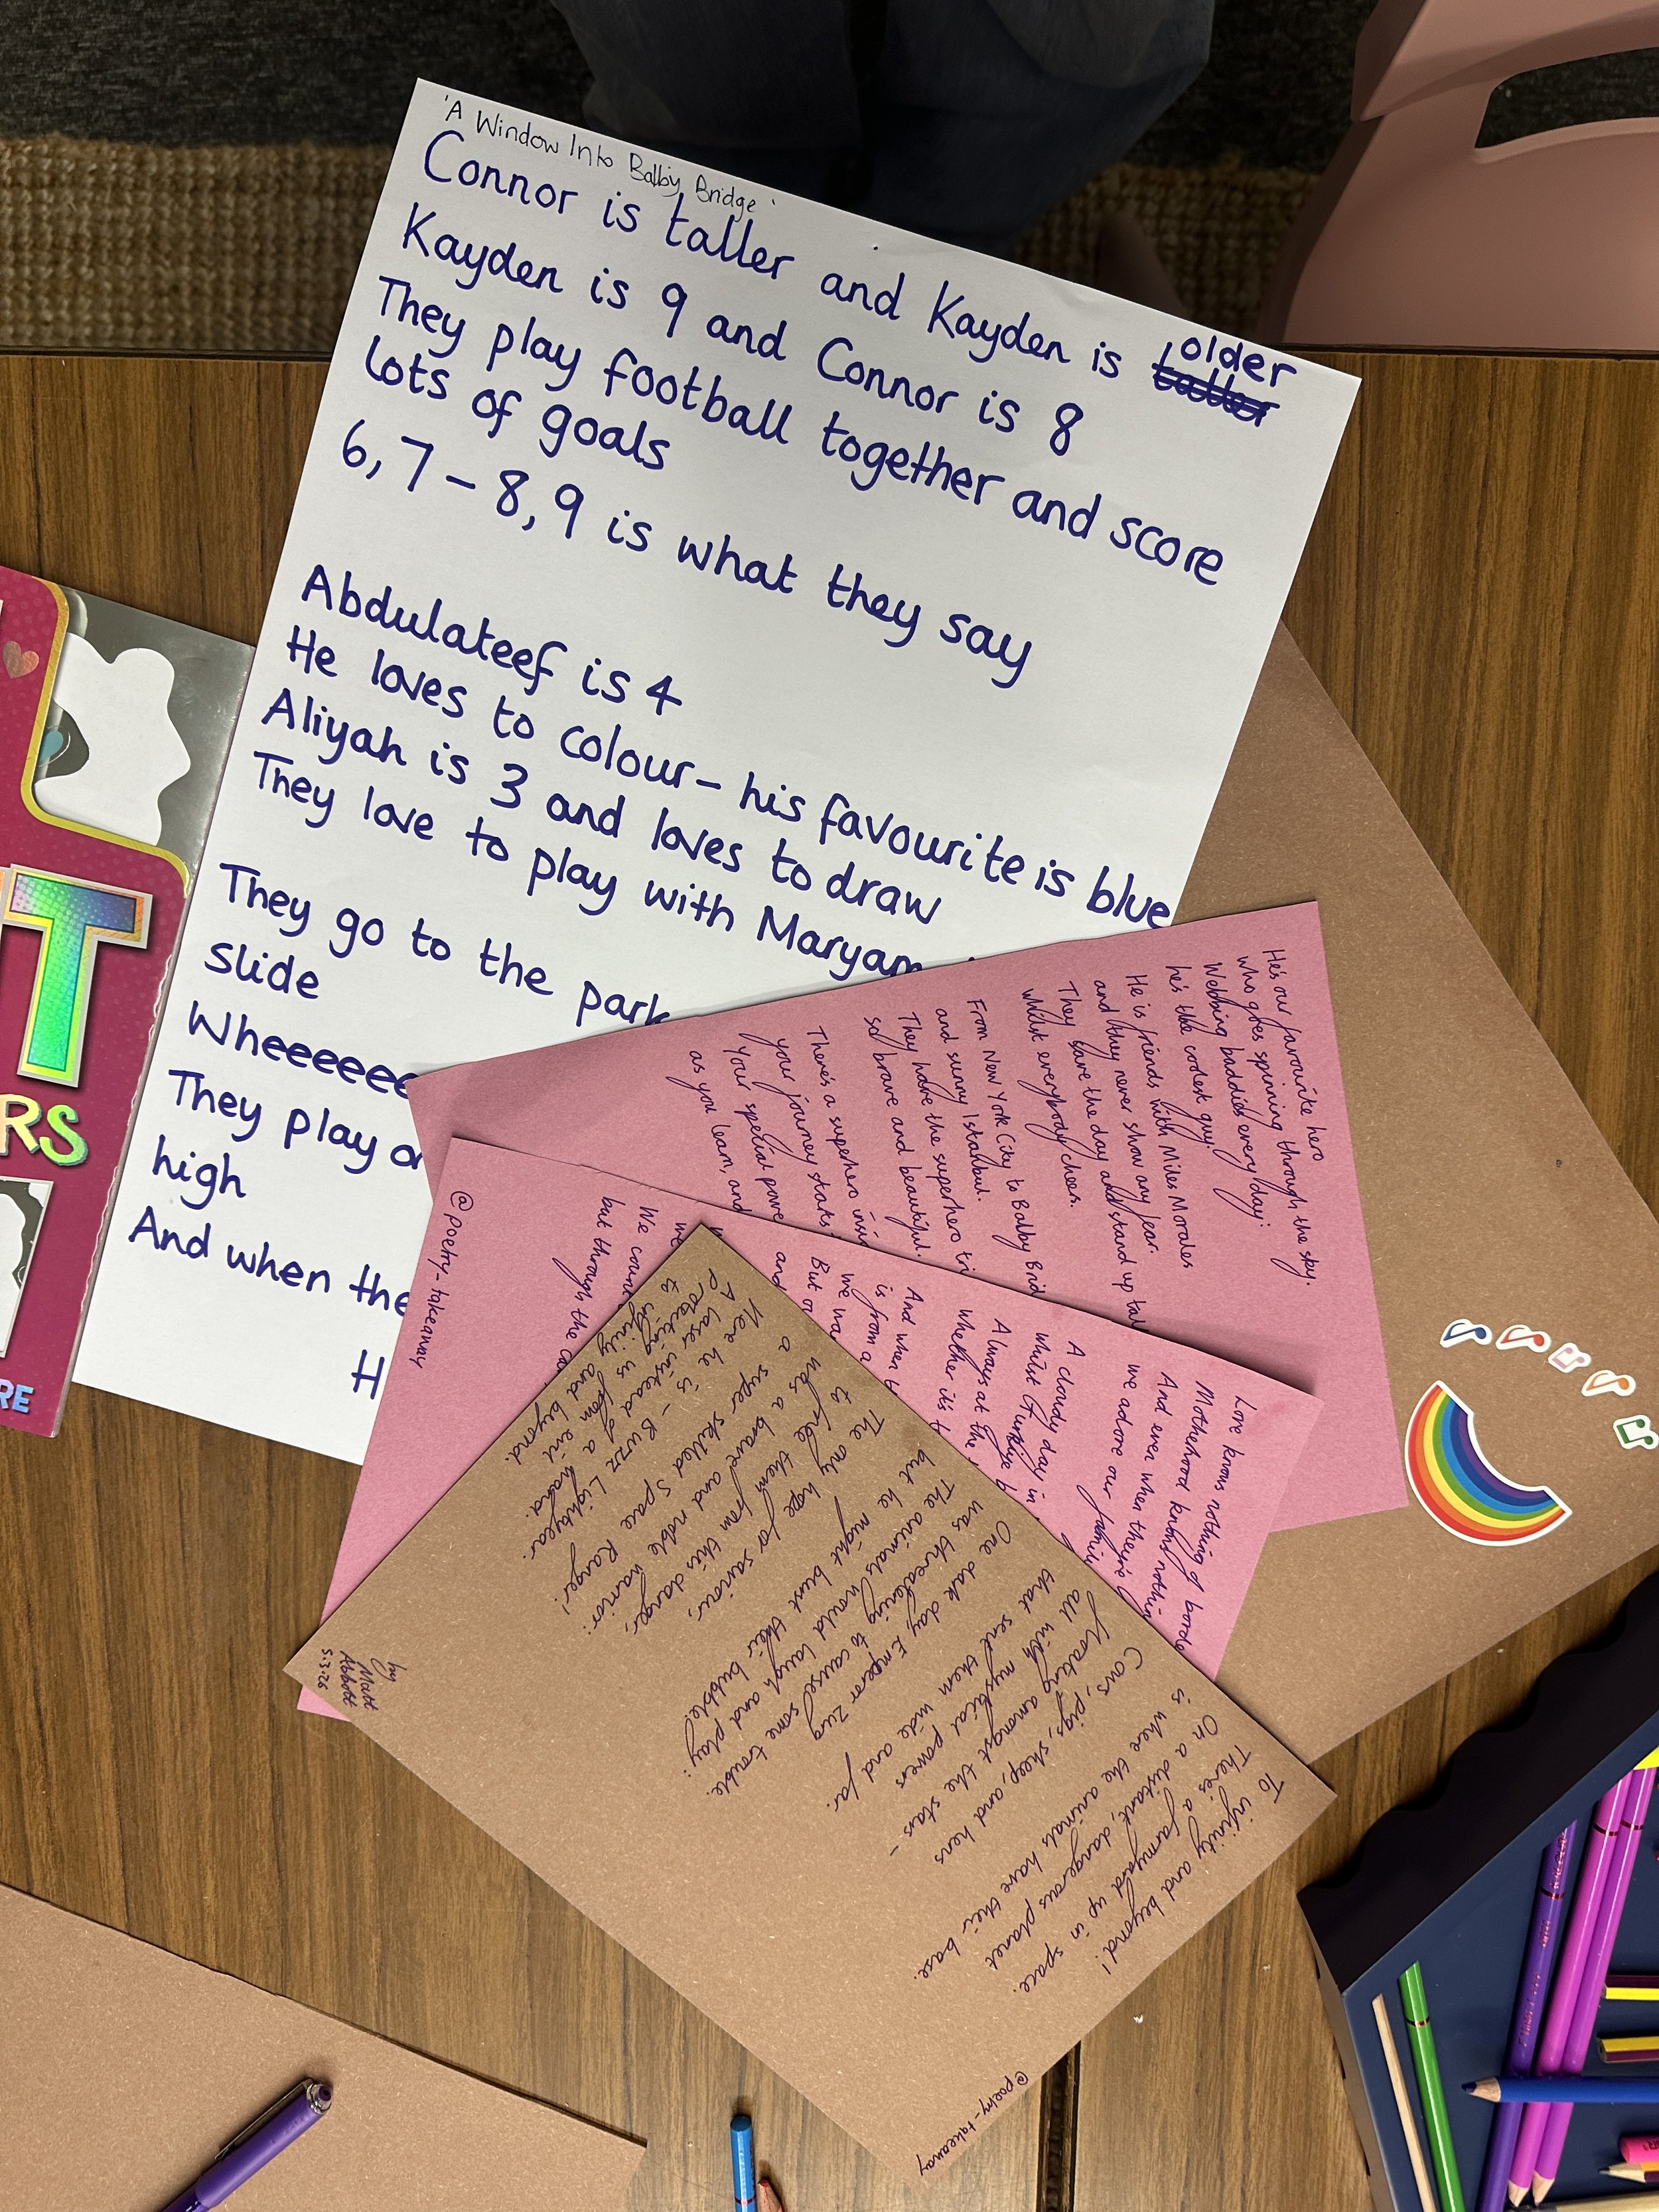 'A Window Into Balby Bridge'
Connor is taller and Kayden is older
taller
Kayden is 9 and Connor is 8
They play football together and score
lots of goals
6, 7 – 8, 9 is what they say
Abdulateef is 4
He loves to colour – his favourite is blue
Aliyah is 3 and loves to draw
They love to play with Maryam
They go to the park
slide
Wheeeeee
They play on
high
And when the
H
He's our favourite hero
who goes spinning through the sky.
Webbing baddies every day:
he's the coolest guy!
He is friends with Miles Morales
and they never show any fear.
They save the day and stand up tal
whilst everybody cheers.
From New York City to Balby Brid
and sunny Istanbul.
They have the superhero tri
so brave and beautiful.
There's a superhero insid
your journey starts
Your special powe
as you learn, and
Love knows nothing of borde
Motherhood knows nothin
And even when they're
we adore our famili
A cloudy day in
whilst
Always at the
whether it's t
And when t
is from a
we wa
But o
and
w
we
We coun
but through the co
@poetry-takeaway
To infinity and beyond!
There's a farmyard up in space.
On a distant, dangerous planet
is where the animals have their base.
Cows, pigs, sheep, and hens
floating amongst the stars –
all with mystical powers
that sent them wide and far.
One dark day, Emperor Zurg
was threatening to cause some trouble.
The animals would laugh and play:
but he might burst their bubble!
The only hope for saviour,
to free them from this danger,
was a brave and noble warrior:
a super skilled Space Ranger!
Here he is – Buzz Lightyear.
A laser instead of a hand.
Protecting us from evil
to infinity and beyond.
by
Matt
Abbott
5.3.26
@poetry-takeaway
T
RS
RE